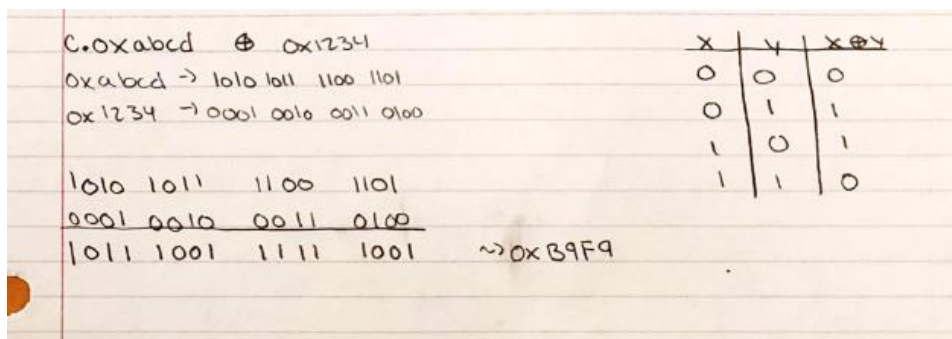 C. 0xabcd ⊕ 0x1234
0xabcd -> 1010 1011 1100 1101
0x1234 -> 0001 0010 0011 0100
1010 1011 1100 1101
0001 0010 0011 0100
1011 1001 1111 1001 ~> 0xB9F9
X Y X⊕Y
0 0 0
0 1 1
1 0 1
1 1 0